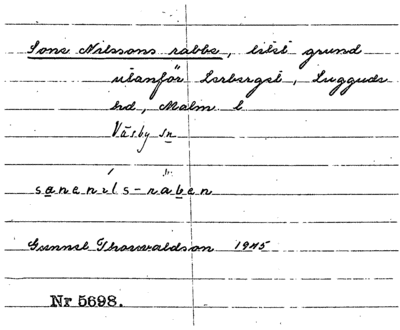 Sone Nilssons rabbe, litet grund
utanför Lerberget, Luggude
hd, Malm. l
Väsby sn
sånəníls-ràben
Gunnel Thorvaldson 1945
Nr 5698.